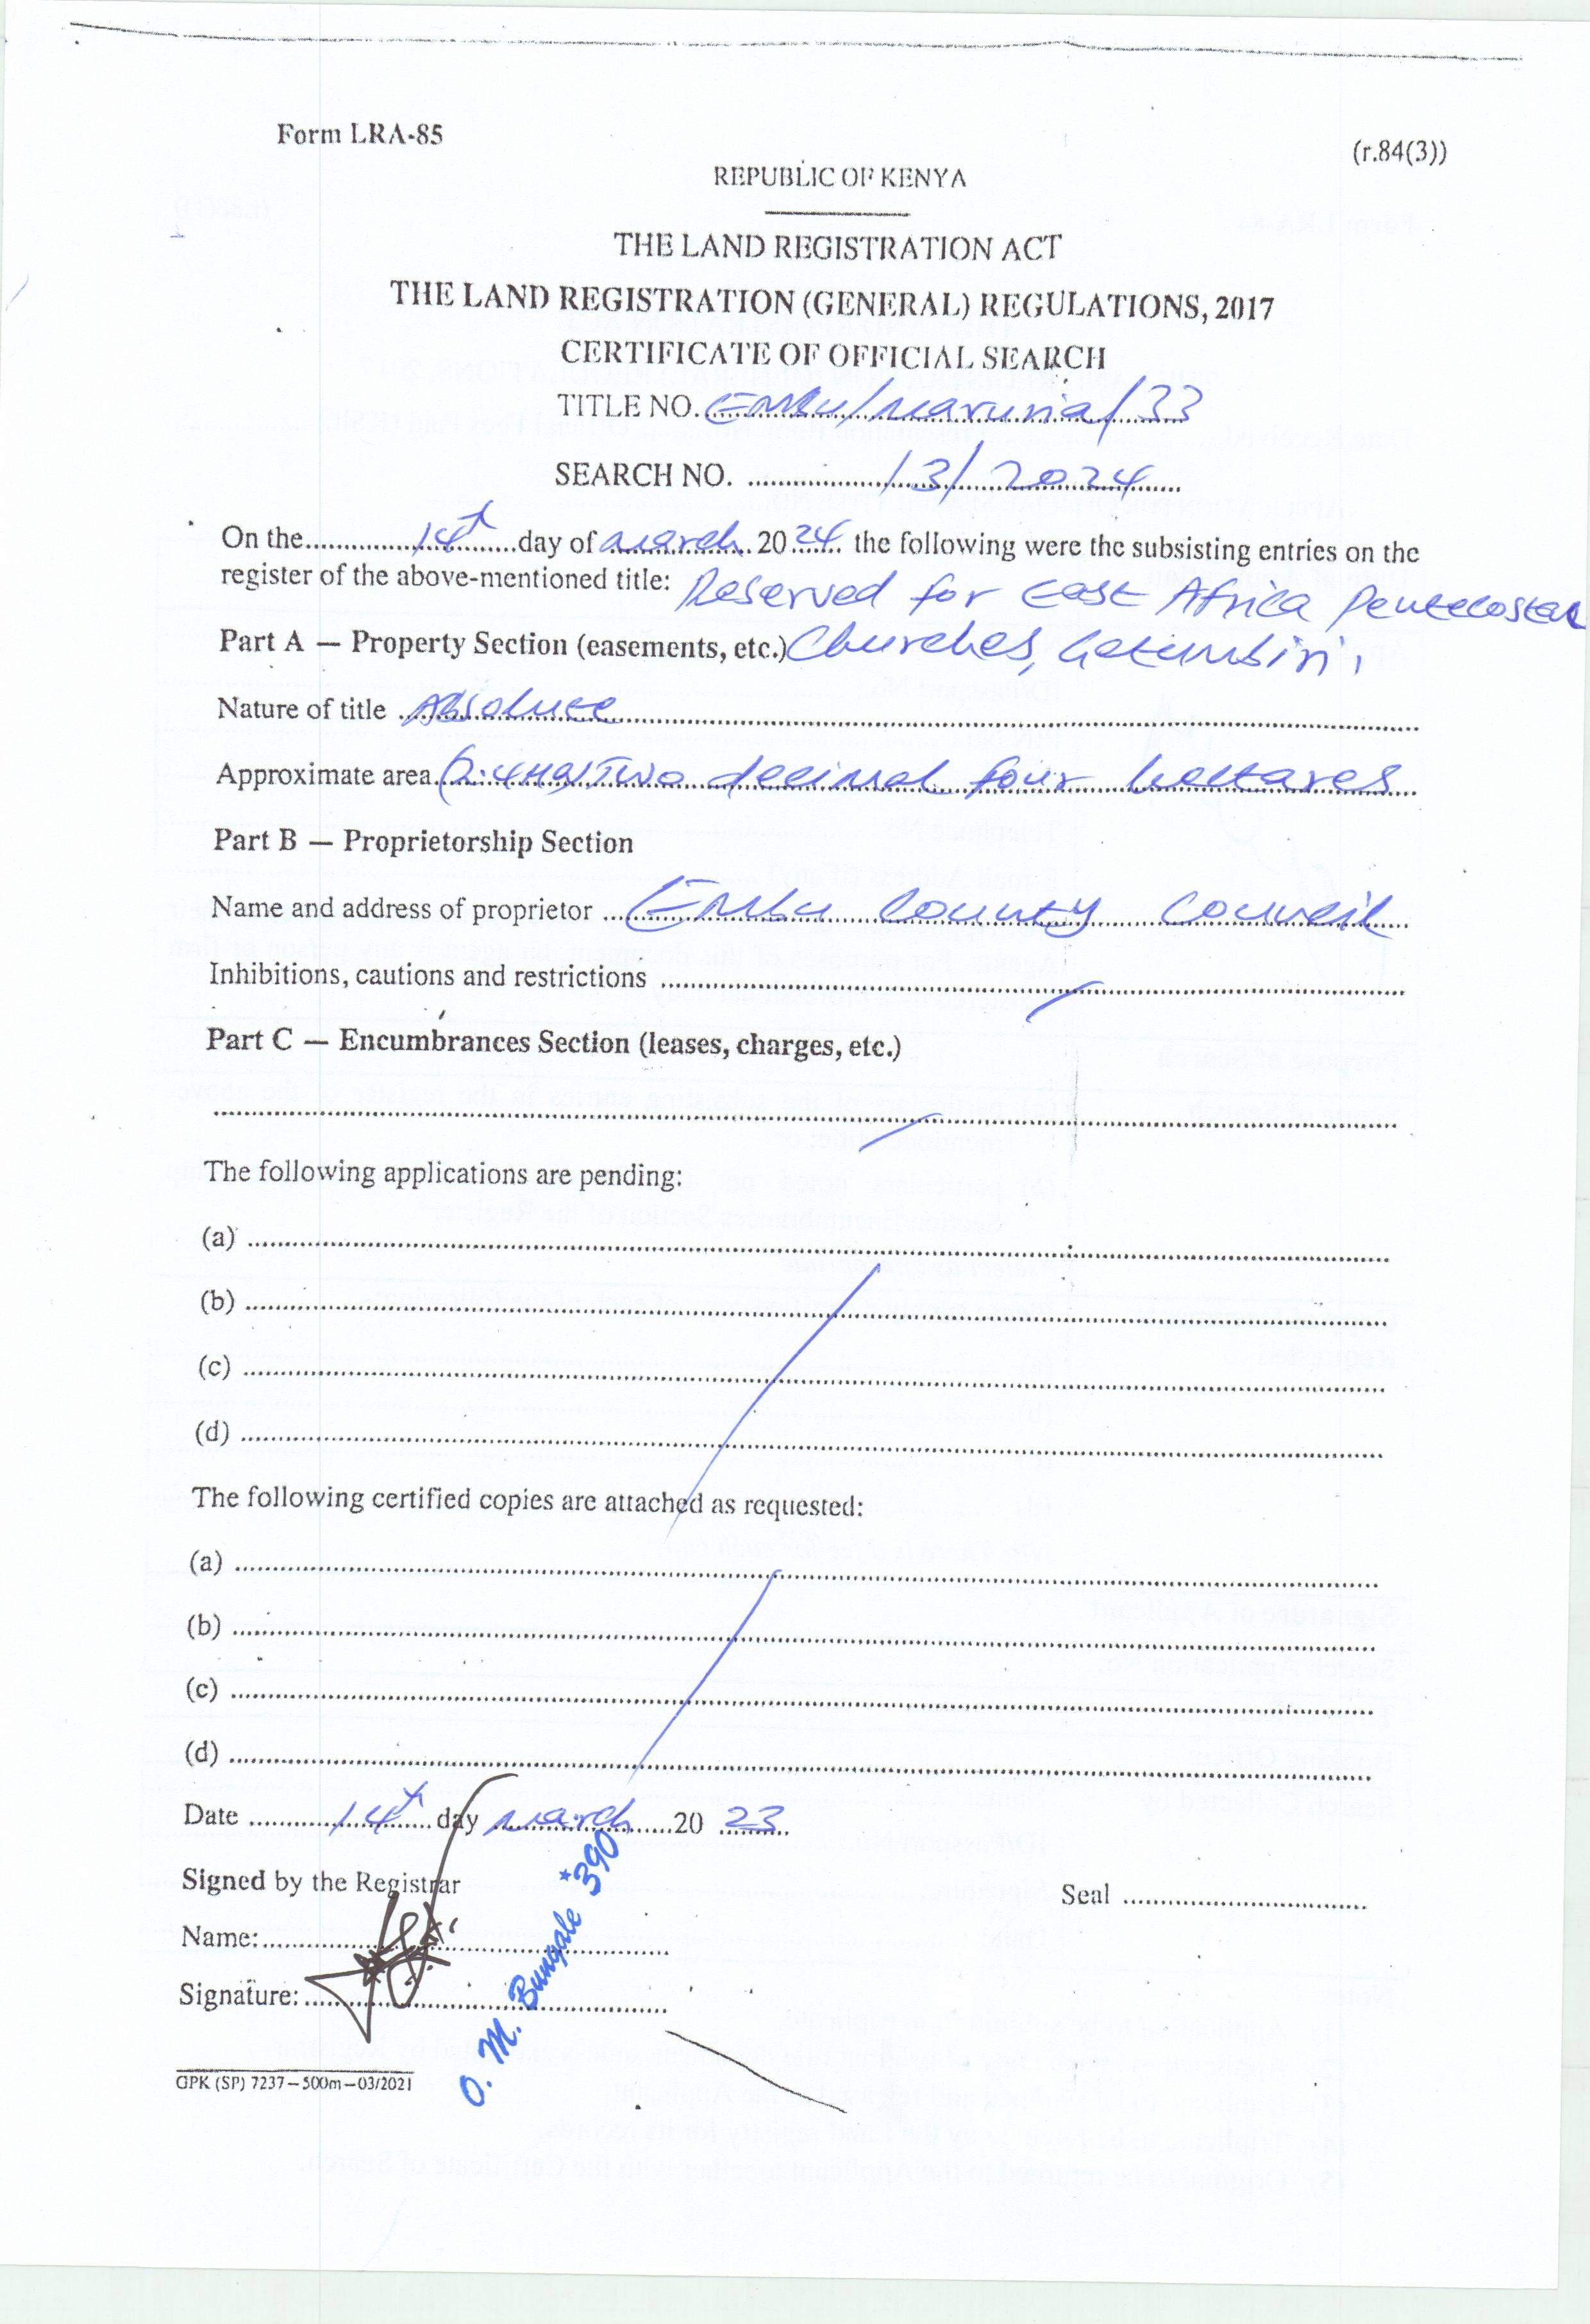 Form LRA-85
(r.84(3))
REPUBLIC OF KENYA
THE LAND REGISTRATION ACT
THE LAND REGISTRATION (GENERAL) REGULATIONS, 2017
CERTIFICATE OF OFFICIAL SEARCH
TITLE NO. Embu/Maruria/33
SEARCH NO. 13/2024
On the 14th day of March 2024 the following were the subsisting entries on the
register of the above-mentioned title: Reserved for East Africa Pentecostal
Part A — Property Section (easements, etc.) Churches,
Nature of title Absolute
Approximate area (2.4Ha) Two decimal four hectares
Part B — Proprietorship Section
Name and address of proprietor Embu County Council
Inhibitions, cautions and restrictions
Part C — Encumbrances Section (leases, charges, etc.)
The following applications are pending:
(a)
(b)
(c)
(d)
The following certified copies are attached as requested:
(a)
(b)
(c)
(d)
Date 14th day March 20 23
Signed by the Registrar
Seal
Name:
Signature:
O. M. Bungale *390
GPK (SP) 7237–500m–03/2021